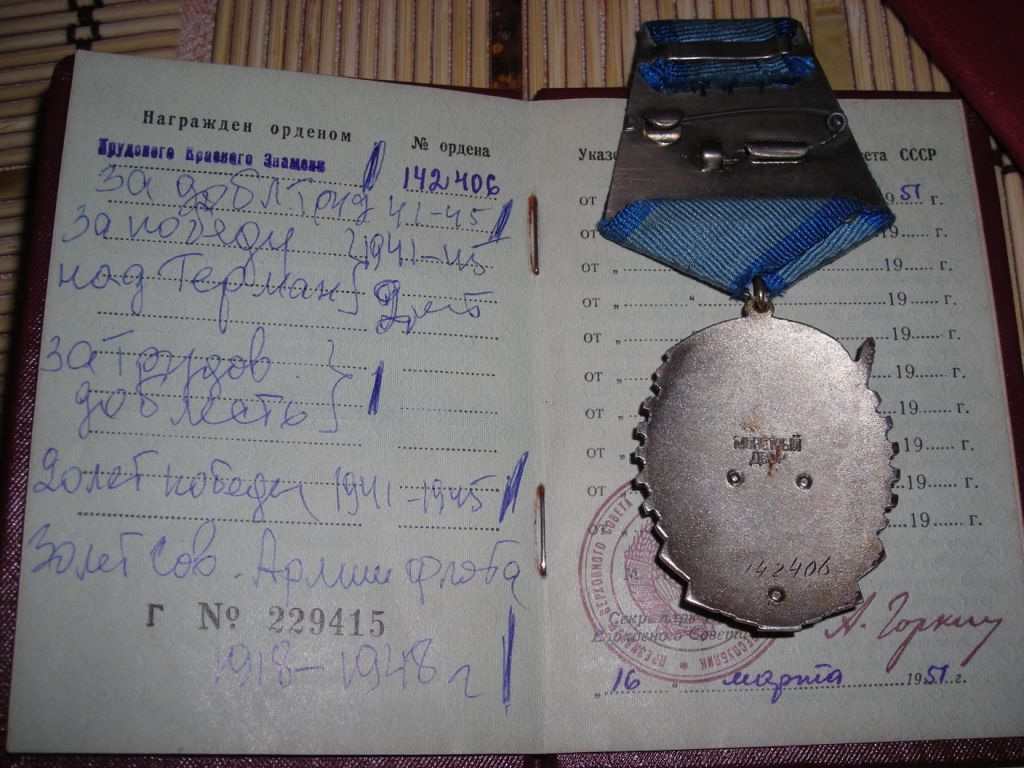 Награжден орденом
№ ордена
Трудового Красного Знамени
142406
за добл труд 41-45
за победу 1941-45
над Герман
за трудов
доблесть
20 лет победы 1941-1945
30 лет Сов. Армии флота
Г № 229415
1918-1948 г
Указ
ета СССР
от 51 г.
от 19 г.
от „ 19 г.
от „ “ 19 г.
от „ 19 г.
от „ 19 г.
от „ 19 г.
от „ 19 г.
от „ 19 г.
19 г.
МОНЕТНЫЙ
ДВОР
142406
М
Секретарь
Верховного Совета
А. Горкин
„ 16 “ марта 1951 г.
ВЕРХОВНОГО СОВЕТА